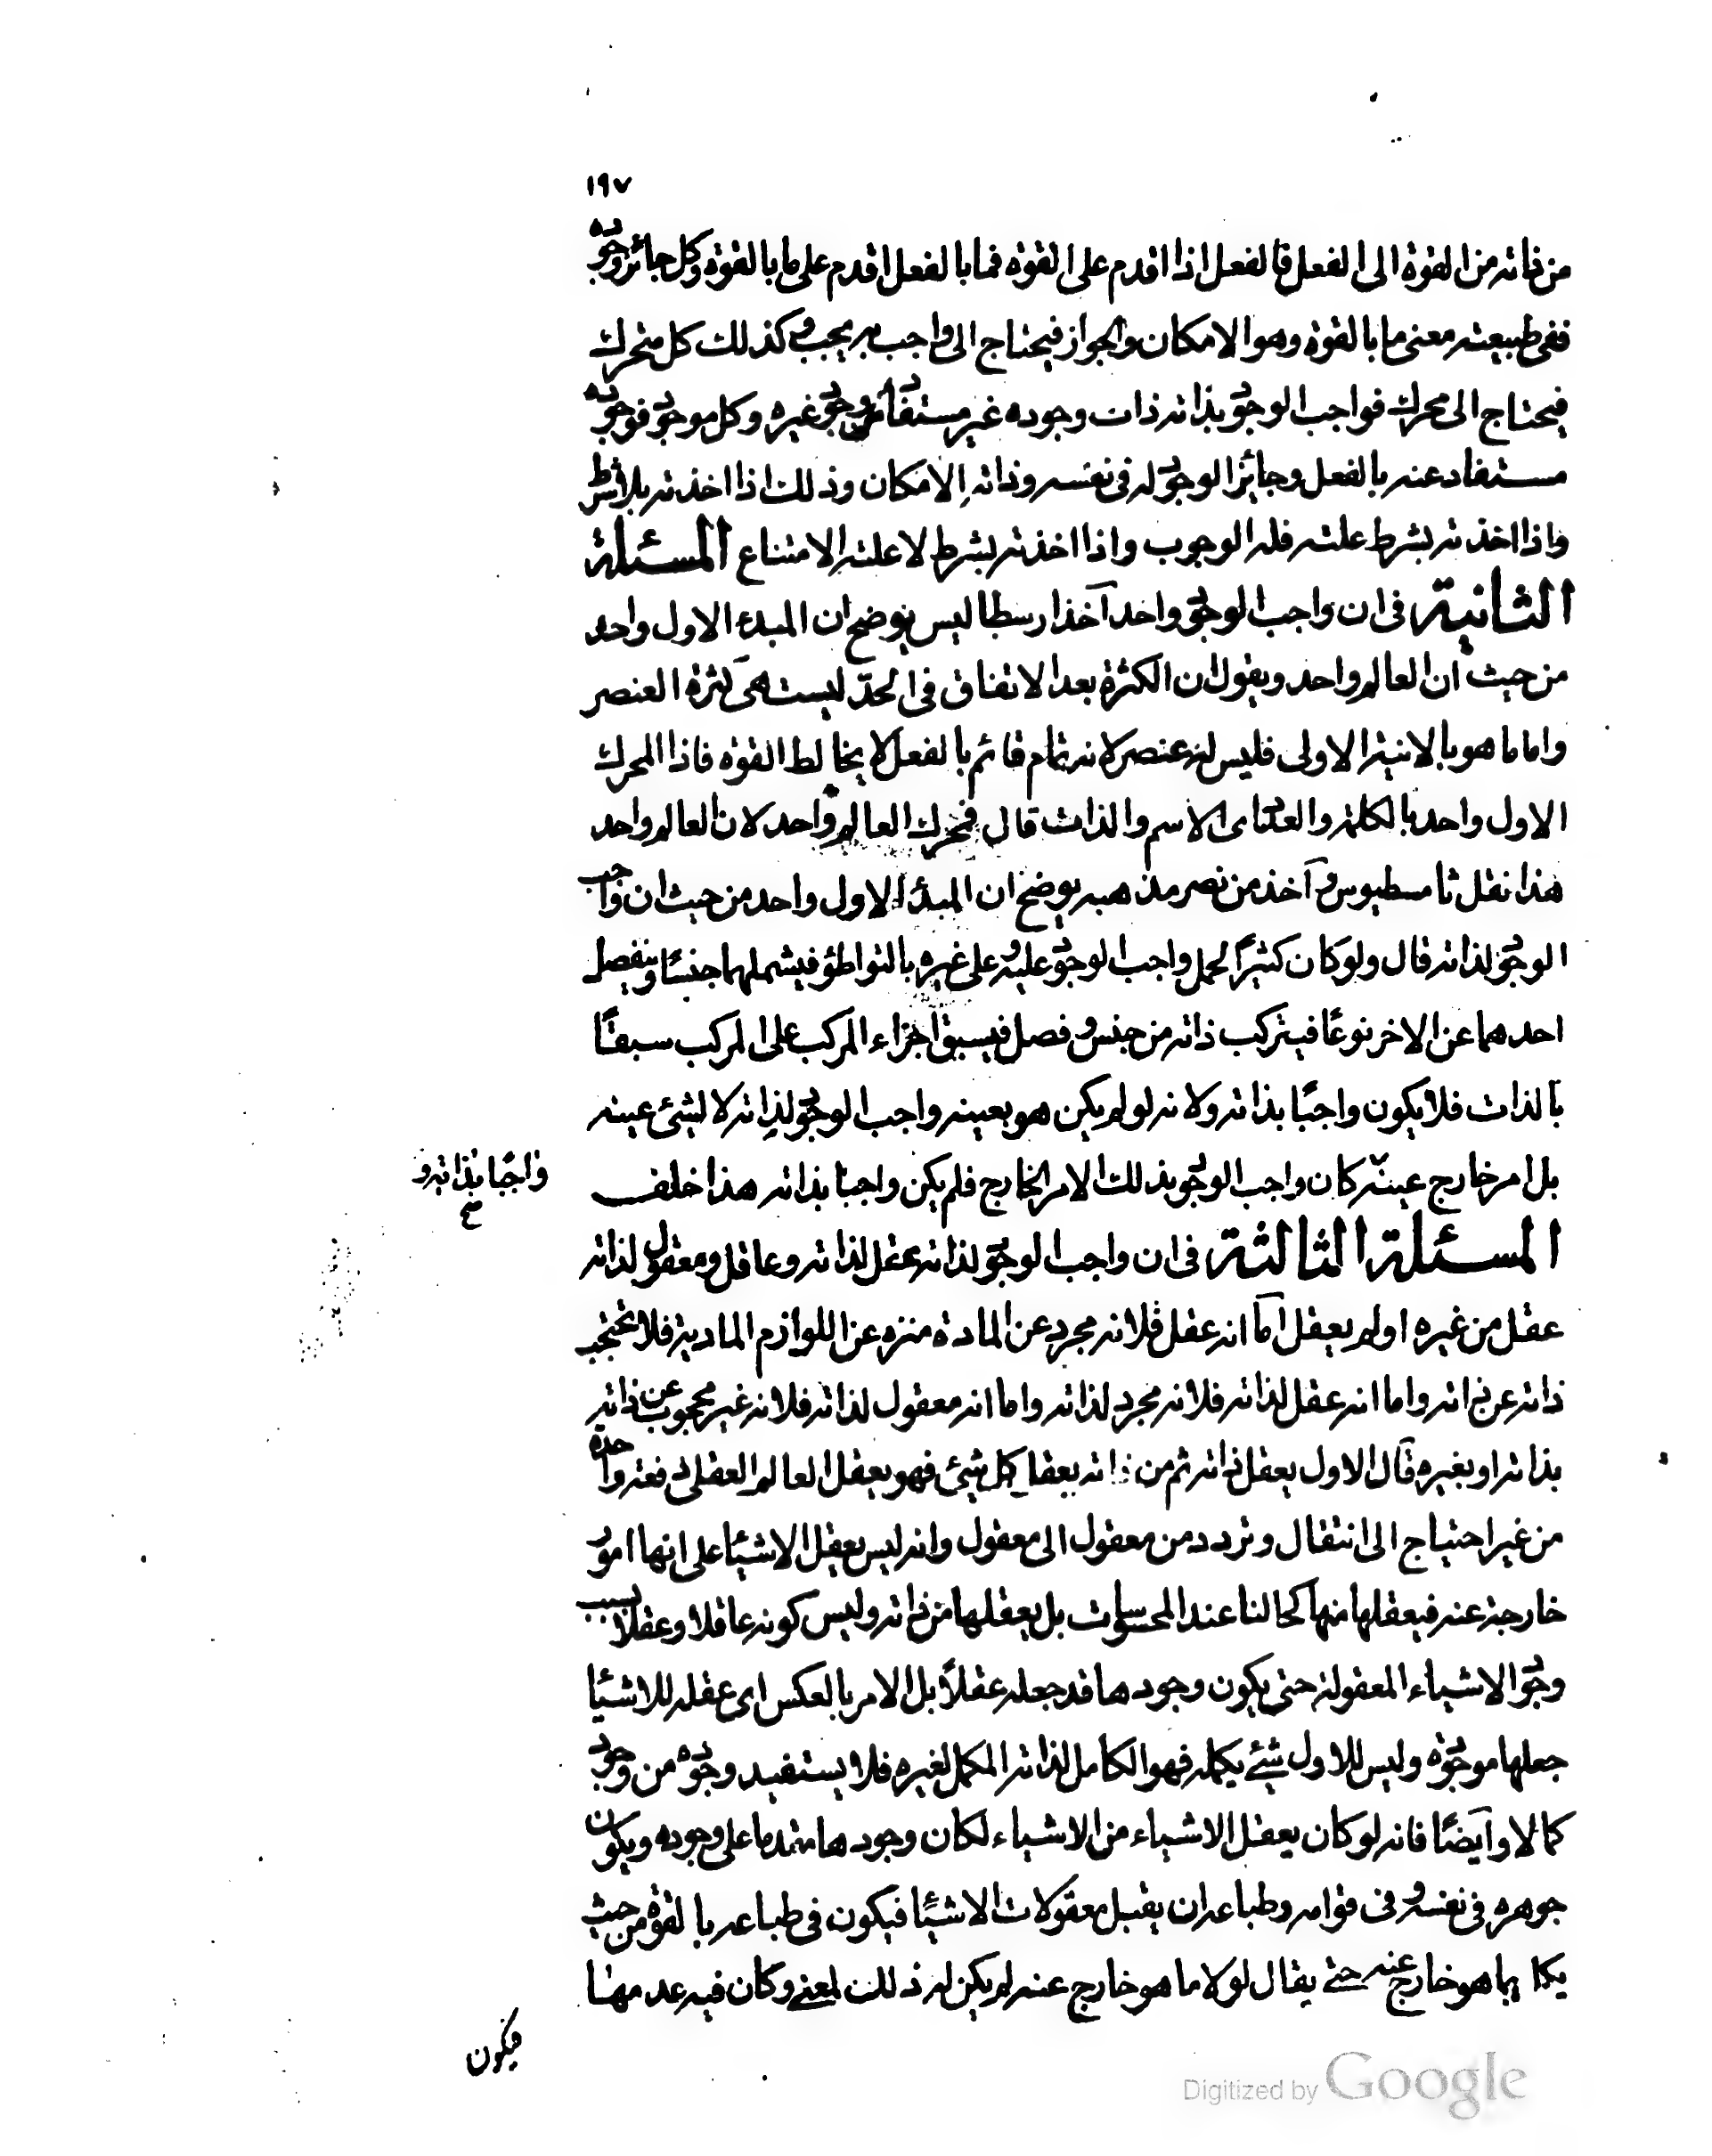 ١٩٧
من ذاته من القوة الى الفعل فالفعل اذا اقدم على القوة فما بالفعل اقدم على ما بالقوة وكل جائز وجوده
ففى طبيعته معنى ما بالقوة وهو الامكان والجواز فيحتاج الى واجب به يجب وكذلك كل متحرك
فيحتاج الى محرك فواجب الوجود بذاته ذات وجوده غير مستفاد من وجود غيره وكل موجود فوجوده
مستفاد عنه بالفعل وجائز الوجود له فى نفسه وذاته الامكان وذلك اذا اخذته بلا شرط
واذا اخذته بشرط علته فله الوجوب واذا اخذته بشرط لا علته الامتناع المسئلة
الثانية فى ان واجب الوجود واحد آخذ ارسطاليس يوضح ان المبدء الاول واحد
من حيث ان العالم واحد ويقول ان الكثرة بعد الاتفاق فى الحد ليست هى كثرة العنصر
واما ما هو بالانية الاولى فليس له عنصر لانه تمام قائم بالفعل لا يخالط القوة فاذا المحرك
الاول واحد بالكلمة والعدد اى الاسم والذات قال فمحرك العالم واحد لان العالم واحد
هذا نقل ثامسطيوس وآخذ من نصر مذهبه يوضح ان المبدأ الاول واحد من حيث ان واجب
الوجود لذاته قال ولو كان كثيرًا لحمل واجب الوجود عليه وعلى غيره بالتواطؤ فيشملهما جنسًا وينفصل
احدهما عن الاخر نوعًا فيتركب ذاته من جنس وفصل فيسبق اجزاء المركب على المركب سبقًا
بالذات فلا يكون واجبًا بذاته ولانه لو لم يكن هو بعينه واجب الوجود لذاته لا لشئ عينه
بل امر خارج عينه كان واجب الوجود بذلك الامر الخارج فلم يكن واجبا بذاته هذا خلف
واجبًا بذاته و
صح
المسئلة الثالثة فى ان واجب الوجود لذاته عقل لذاته وعاقل ومعقول لذاته
عقل من غيره او لم يعقل اما انه عقل فلانه مجرد عن المادة منزه عن اللوازم المادية فلا تحتجب
ذاته عن ذاته واما انه عقل لذاته فلانه مجرد لذاته واما انه معقول لذاته فلانه غير محجوب عن ذاته
بذاته او بغيره قال الاول يعقل ذاته ثم من ذاته يعقل كل شئ فهو يعقل العالم العقلى دفعة واحدة
من غير احتياج الى انتقال وتردد من معقول الى معقول وانه ليس يعقل الاشيا على انها امور
خارجة عنه فيعقلها منها كحالنا عند المحسوسات بل يعقلها من ذاته وليس كونه عاقلا وعقلا بسبب
وجود الاشياء المعقولة حتى يكون وجودها قد جعله عقلاً بل الامر بالعكس اى عقله للاشيا
جعلها موجودة وليس للاول شئ يكمله فهو الكامل لذاته المكمل لغيره فلا يستفيد وجوده من وجود
كمالا وآيضًا فانه لو كان يعقل الاشياء من الاشياء لكان وجودها متقدما على وجوده ويكون
جوهره فى نفسه وفى قوامه وطباعه ان يقبل معقولات الاشيا فيكون فى طباعه بالقوة من حيث
يكمل بما هو خارج عنه حتى يقال لولا ما هو خارج عنه لم يكن له ذلك المعنى وكان فيه عدمها
فيكون
Digitized by Google